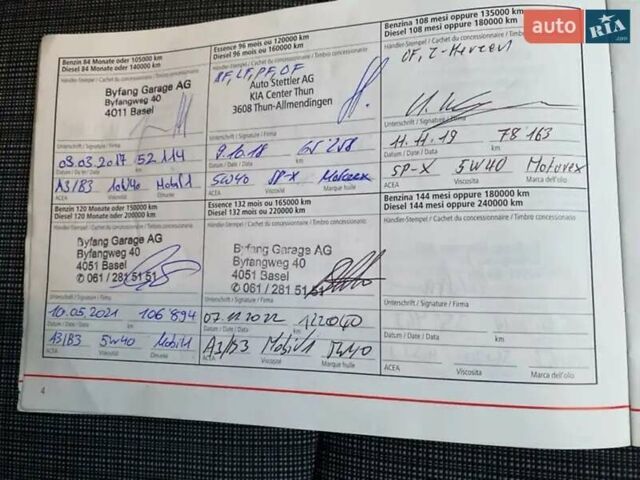 auto RIA.com
Benzin 84 Monate oder 105000 km
Diesel 84 Monate oder 140000 km
Händler-Stempel / Cachet du concessionnaire / Timbro concessionario
Byfang Garage AG
Byfangweg 40
4011 Basel
Unterschrift / Signature / Firma
03.03.2017 52 114
Datum / Date / Data km
A3/B3 10W40 Mobil 1
ACEA Viscosité Ölmarke
Essence 96 mois ou 120000 km
Diesel 96 mois ou 160000 km
Händler-Stempel / Cachet du concessionnaire / Timbro concessionario
BF, LF, PF, OF
Auto Stettler AG
KIA Center Thun
3608 Thun-Allmendingen
Unterschrift / Signature / Firma
9.10.18 65 258
Datum / Date / Data km
5W40 SP-X Motorex
ACEA Viscosité Marque huile
Benzina 108 mesi oppure 135000 km
Diesel 108 mesi oppure 180000 km
Händler-Stempel / Cachet du concessionnaire / Timbro concessionario
Unterschrift / Signature / Firma
11.11.19 78 163
Datum / Date / Data km
SP-X 5W40 Motorex
ACEA Viscosita Marca dell'olio
Benzin 120 Monate oder 150000 km
Diesel 120 Monate oder 200000 km
Händler-Stempel / Cachet du concessionnaire / Timbro concessionario
Byfang Garage AG
Byfangweg 40
4051 Basel
✆ 061 / 281 51 51
Unterschrift / Signature / Firma
10.05.2021 106'894
Datum / Date / Data km
A3/B3 5W40 Mobil 1
ACEA Viscosité Ölmarke
Essence 132 mois ou 165000 km
Diesel 132 mois ou 220000 km
Händler-Stempel / Cachet du concessionnaire / Timbro concessionario
Byfang Garage AG
Byfangweg 40
4051 Basel
✆ 061 / 281 51 51
Unterschrift / Signature / Firma
07.11.2022 122040
Datum / Date / Data km
A3/B3 Mobil 1 5W40
ACEA Viscosité Marque huile
Benzina 144 mesi oppure 180000 km
Diesel 144 mesi oppure 240000 km
Händler-Stempel / Cachet du concessionnaire / Timbro concessionario
Unterschrift / Signature / Firma
Datum / Date / Data km
ACEA Viscosita Marca dell'olio
4